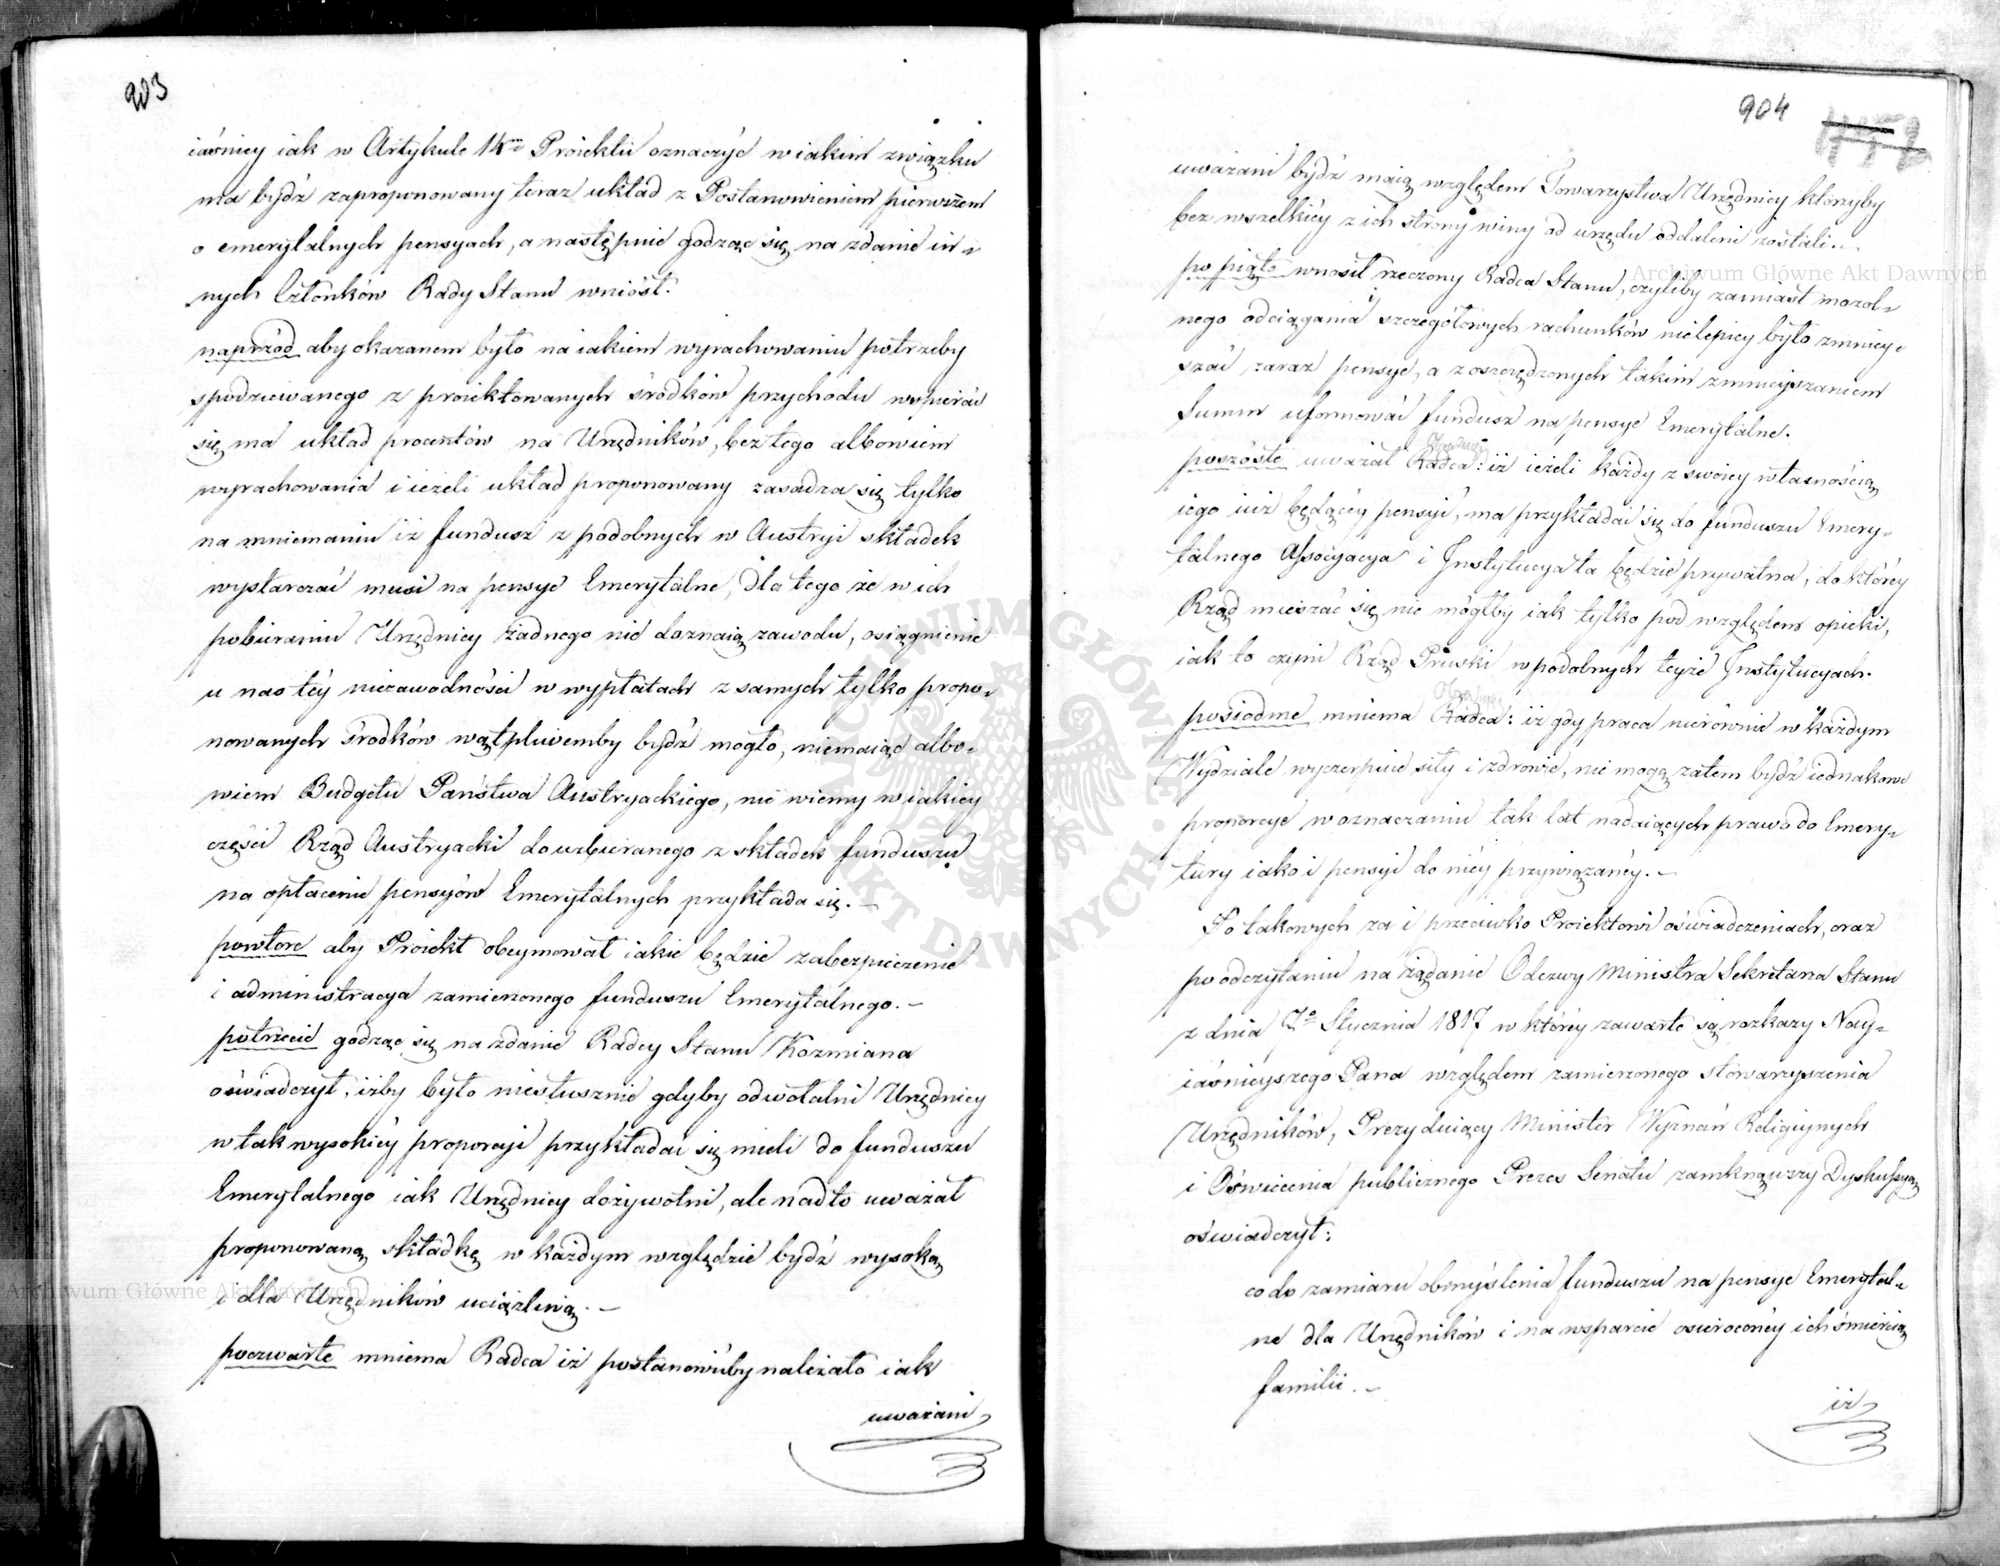 903
iaśniey iak w Artykule 14m Proiektu oznaczyć w iakim związku
ma bydź zaproponowany teraz układ z Postanowieniem pierwszem
o emerytalnych pensyach, a następnie godząc się na zdanie in-
nych Członków Rady Stanu wniósł.
naprzód aby okazanem było na iakiem wyrachowaniu potrzeby
spodziewanego z proiektowanych środków przychodu wspierać
się ma układ procentów na Urzędników, bez tego albowiem
wyrachowania i ieżeli układ proponowany zasadza się tylko
na mniemaniu iż fundusz z podobnych w Austryi składek
wystarczać musi na pensye Emerytalne, dla tego że w ich
pobieraniu Urzędnicy żadnego nie doznaią zawodu, osiągnienie
u nas téy niezawodności w wypłatach z samych tylko propo-
nowanych środków wątpliwemby bydź mogło, niemaiąc albo-
wiem Budgetu Państwa Austryackiego, nie wiemy w iakiey
części Rząd Austryacki do uzbieranego z składek funduszu
na opłacenie pensyów Emerytalnych przykłada się. –
powtore aby Proiekt obeymował iakie będzie zabezpieczenie
i administracya zamierzonego funduszu Emerytalnego. –
potrzecie godząc się na zdanie Radcy Stanu Kozmiana
oświadczył, iżby było niesłusznie gdyby odwołalni Urzędnicy
w tak wysokiéy proporcyi przykładać się mieli do funduszu
Emerytalnego iak Urzędnicy dożywotni, ale nadto uważał
proponowaną składkę w każdym względzie bydź wysoką
i dla Urzędników uciążliwą. –
poczwarte mniema Radca iż postanowićby należało iak
uważani
904
uważani bydź maią względem Towarzystwa Urzędnicy którzyby
bez wszelkiéy z ich strony winy od urzędu oddaleni zostali. –
po piąte wnosił rzeczony Radca Stanu, czyliby zamiast mozol-
nego odciągania szczegółowych rachunków nielepiey było zmniey-
szać zaraz pensye, a z oszczędzonych takim zmnieyszaniem
Summ uformować fundusz na pensye Emerytalne.
poszóste uważał Radca: iż ieżeli każdy z swoiey własnością
iego iuż będącéy pensyi, ma przykładać się do funduszu Emery-
talnego Assocyacya i Instytucya ta będzie prywatna, do któréy
Rząd mieszać się nie mógłby iak tylko pod względem opieki,
iak to czyni Rząd Pruski w podobnych teyże Instytucyach.
posiodme mniema Radca: iż gdy praca nierównie w każdym
Wydziale wyczerpuie siły i zdrowie, nie mogą zatem bydź iednakowe
proporcye w oznaczaniu tak lat nadaiących prawo do Emery-
tury iako i pensyi do niéy przywiązanéy. –
Po takowych za i przeciwko Proiektowi oświadczeniach, oraz
po odczytaniu na żądanie Odezwy Ministra Sekretarza Stanu
z dnia 7o Stycznia 1817 w któréy zawarte są rozkazy Nay-
iaśnieyszego Pana względem zamierzonego stowarzyszenia
Urzędników, Prezyduiący Minister Wyznań Religiynych
i Oświecenia publicznego Prezes Senatu zamknąwszy Dyskussyą
oświadczył:
co do zamiaru obmyślenia funduszu na pensye Emerytal-
ne dla Urzędników i na wsparcie osieroconéy ich śmiercią
familii. –
iż
Archiwum Główne Akt Dawnych
Archiwum Główne Akt Dawnych
ARCHIWUM GŁÓWNE AKT DAWNYCH